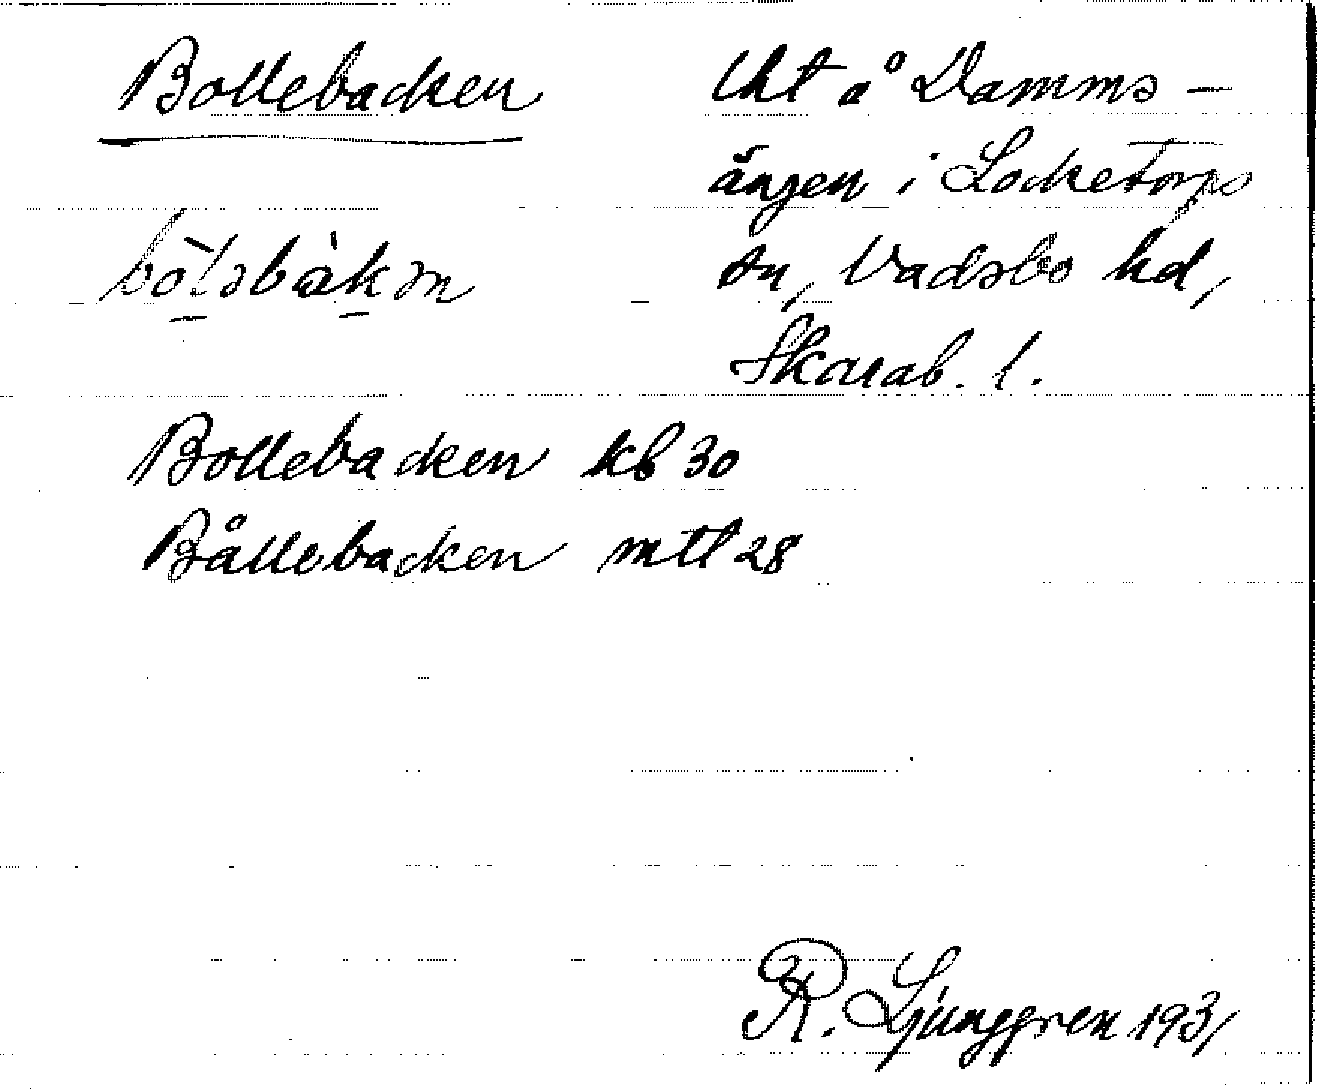 Bollebacken
bòləbàkən
Lht å Damms-
ängen i Locketorps
sn, Vadsbo hd,
Skarab. l.
Bollebacken kb 30
Bållebacken mtl 28
R. Ljunggren 1931